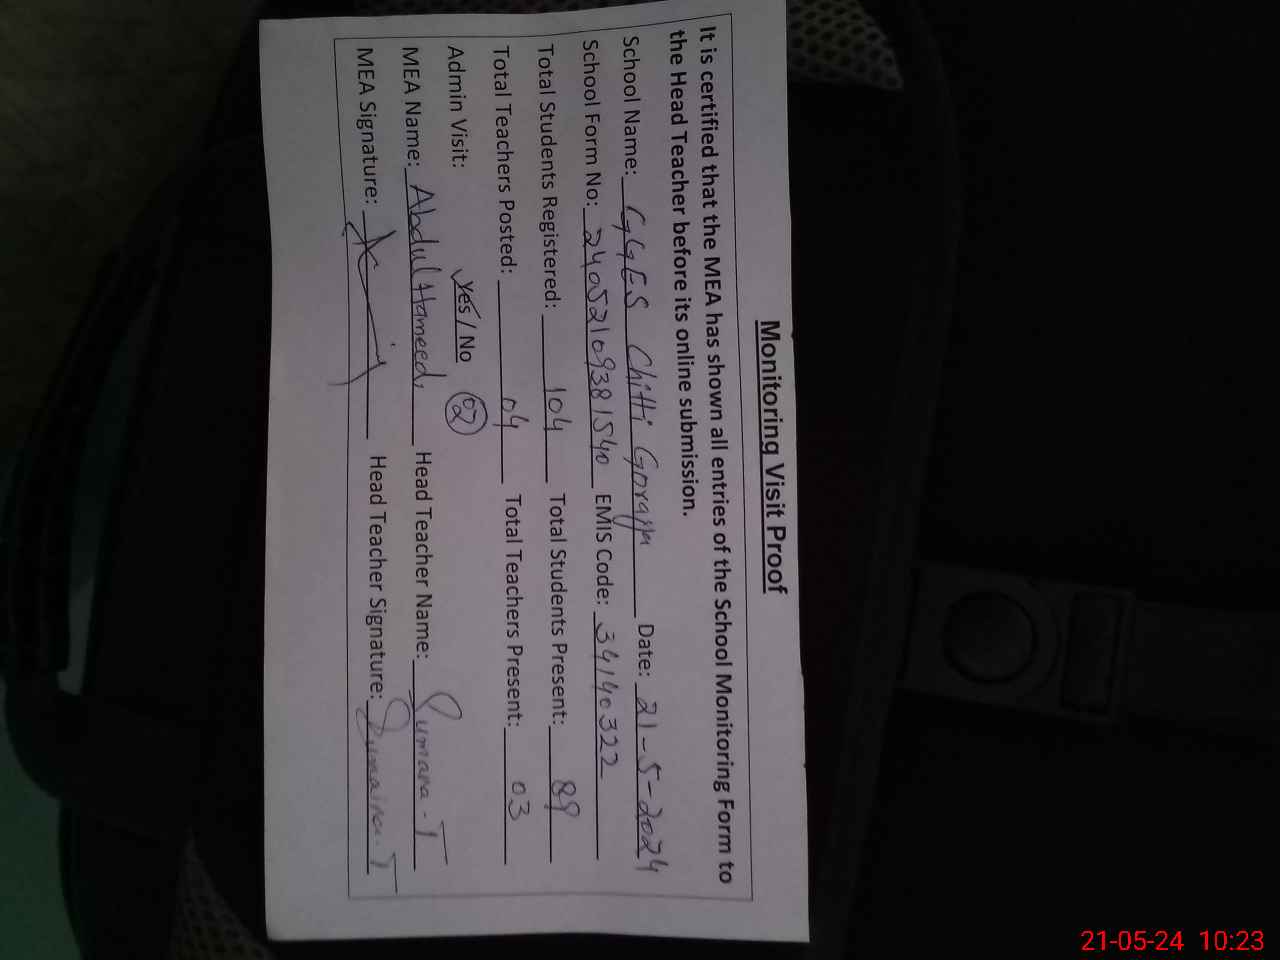 Monitoring Visit Proof
It is certified that the MEA has shown all entries of the School Monitoring Form to
the Head Teacher before its online submission.
School Name: GGES Chitti Goraya Date: 21-5-2024
School Form No: 24052109381540 EMIS Code: 34140322
Total Students Registered: 104 Total Students Present: 89
Total Teachers Posted: 04 Total Teachers Present: 03
Admin Visit: Yes / No 02
MEA Name: Abdul Hameed Head Teacher Name:
MEA Signature: Head Teacher Signature:
21-05-24 10:23